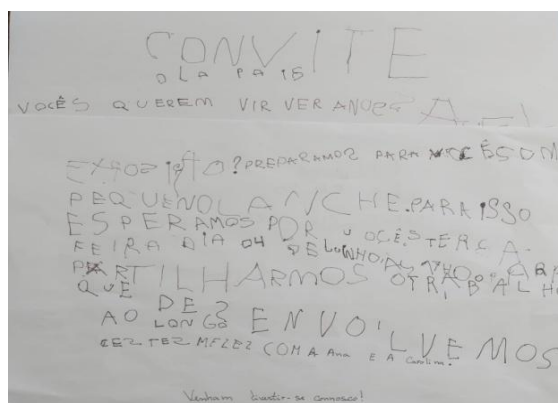 CONVITE
OLA PAIS
VOCÊS QUEREM VIR VER
EXPOZIÇÃO? PREPARAMOS PARA VOCÊS UM
PEQUENO LANCHE. PARA ISSO
ESPERAMOS POR VOCÊS, TERÇA-
FEIRA DIA 04 DE
PARTILHARMOS O TRABALHO
QUE
DE
AO LONGO ENVOLVEMOS
COM A Ana E A
Venham divertir-se connosco!